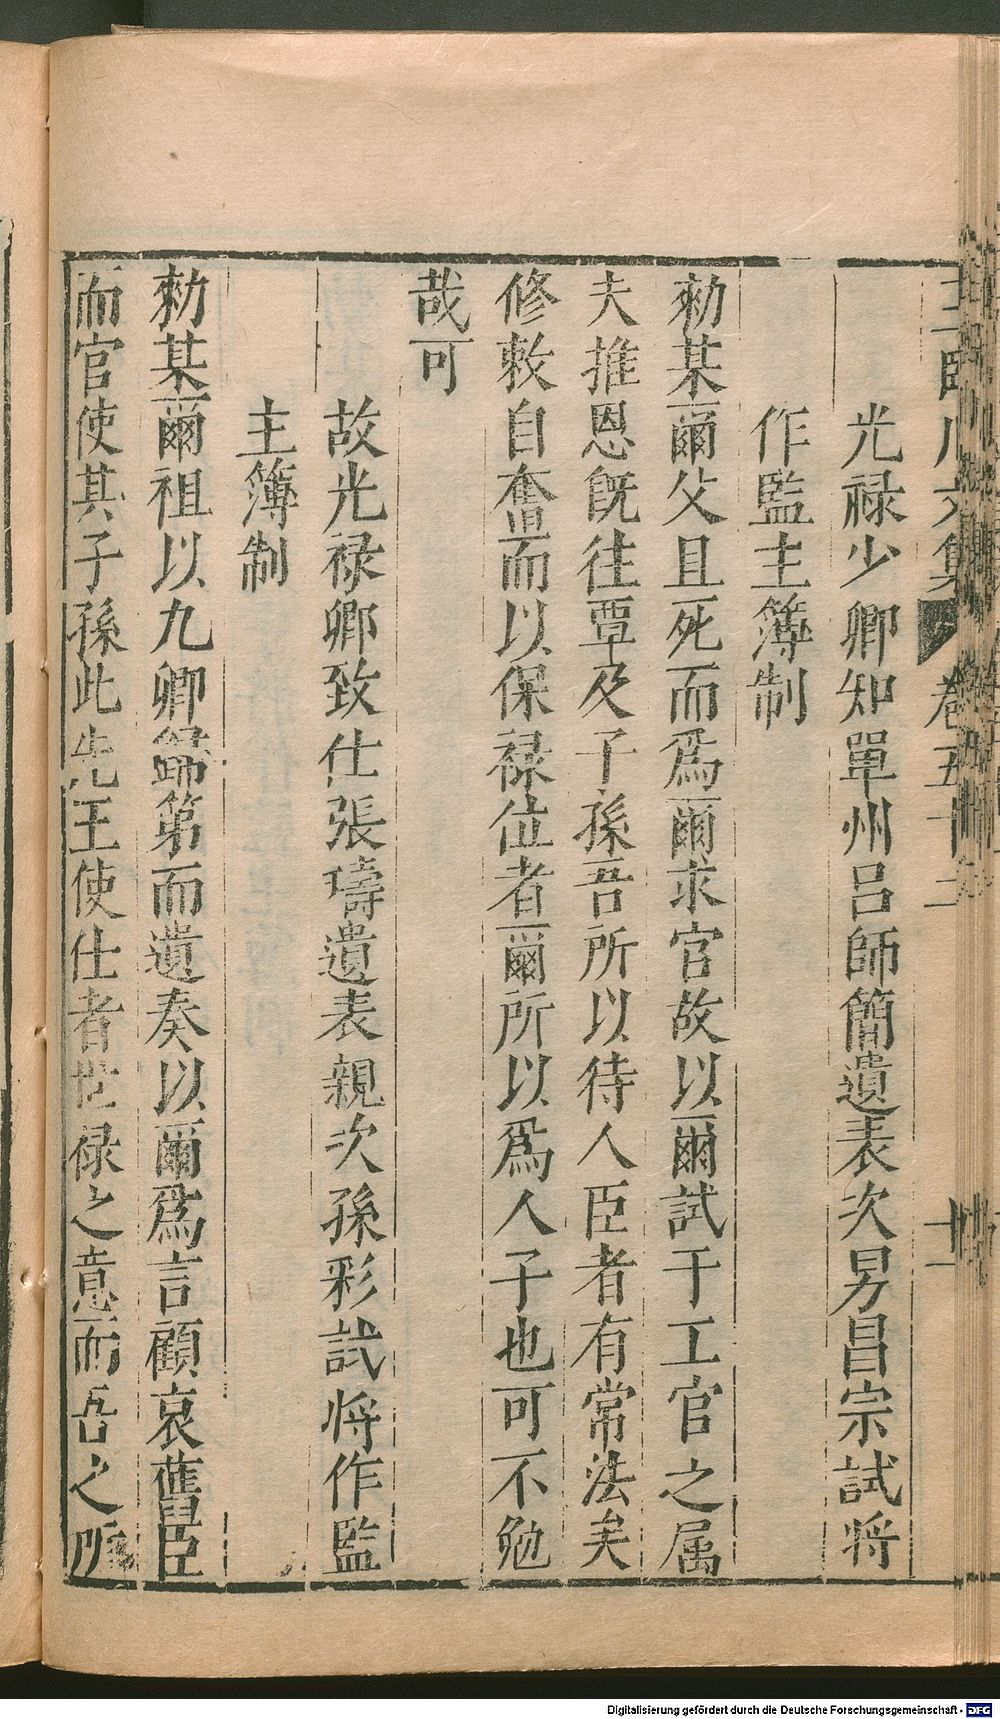 王臨川文集 卷五十二 十一
光禄少卿知單州吕師簡遺表次男昌宗試将
作監主簿制
勑某爾父且死而爲爾求官故以爾試于工官之属
夫推恩旣往覃及子孫吾所以待人臣者有常法矣
修敕自奮而以保禄位者爾所以爲人子也可不勉
哉可
故光禄卿致仕張璹遺表親次孫彩試将作監
主簿制
勑某爾祖以九卿歸第而遺奏以爾爲言顧哀舊臣
而官使其子孫此先王使仕者世禄之意而吾之所
Digitalisierung gefördert durch die Deutsche Forschungsgemeinschaft - DFG